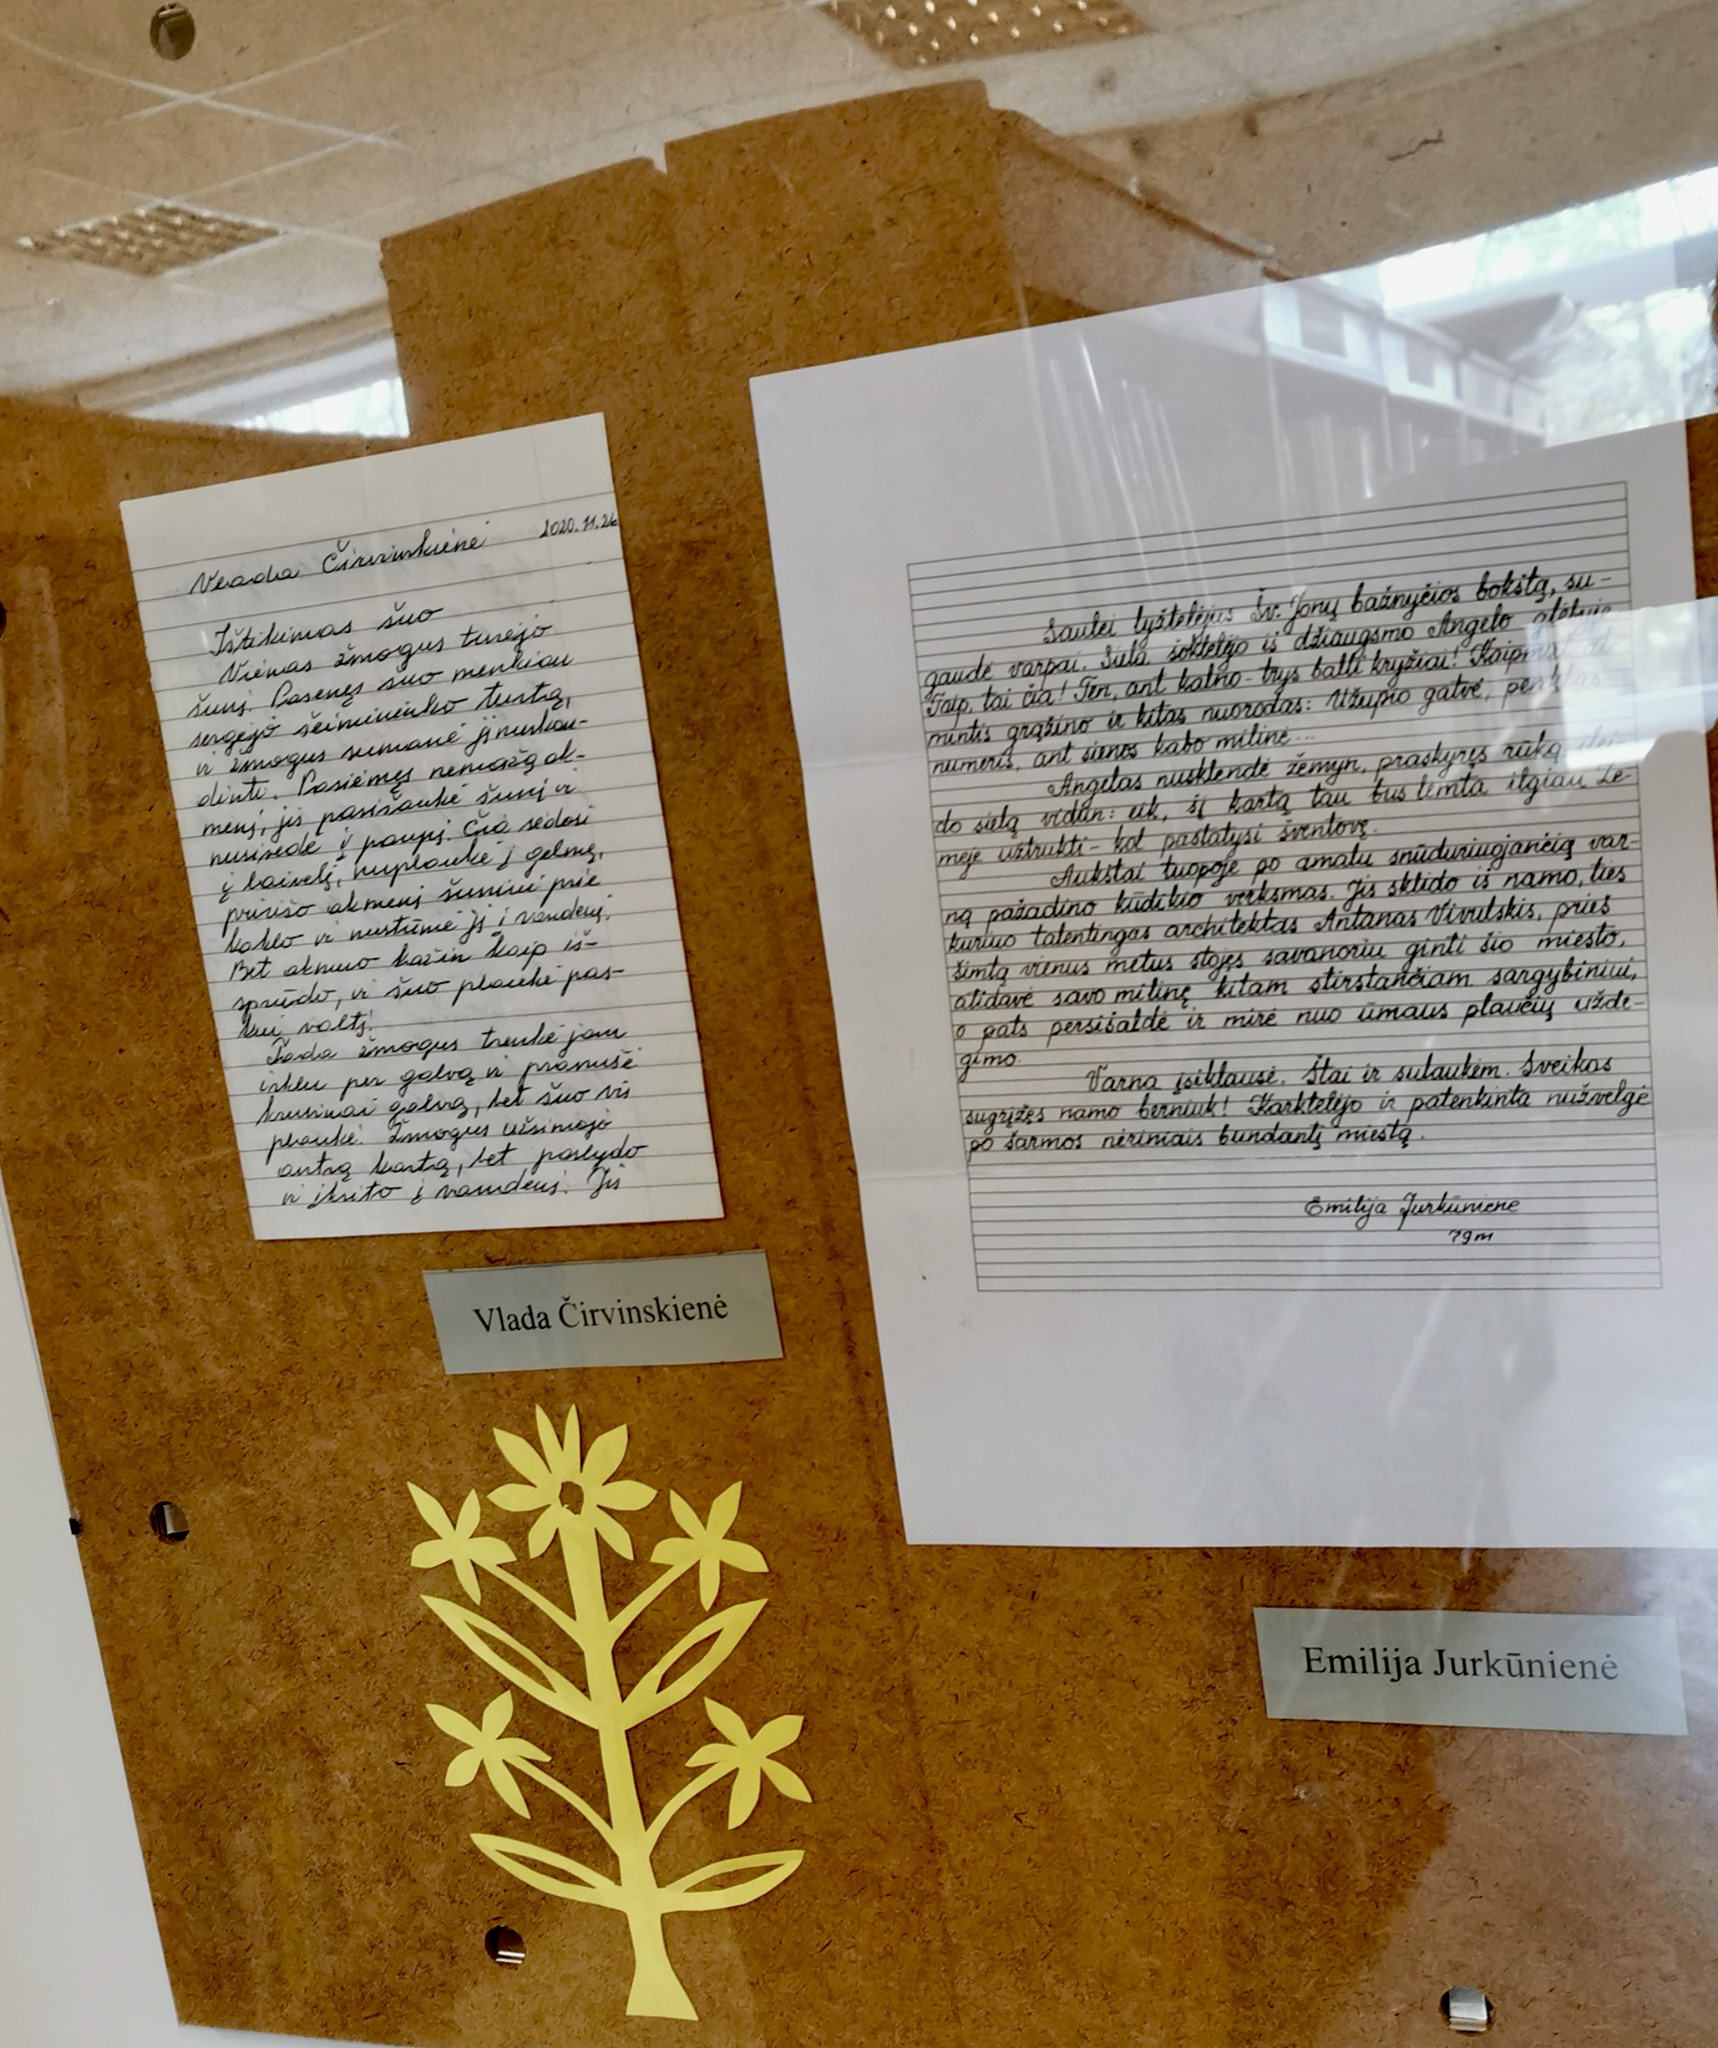 Vlada Čirvinskienė 2020.11.26
Ištikimas šuo
Vienas žmogus turėjo
šunį. Pasenęs šuo menkiau
sergėjo šeimininko turtą,
ir žmogus sumanė jį nuskan-
dinti. Pasiėmęs nemažą ak-
menį, jis pasišaukė šunį ir
nusivedė į paupį. Čia sėdosi
į laivelį, nuplaukė į gelmę,
pririšo akmenį šuniui prie
kaklo ir nustūmė jį į vandenį.
Bet akmuo kažin kaip iš-
sprūdo, ir šuo plaukė pas-
kui valtį.
Tada žmogus trenkė jam
irklu per galvą ir pramušė
kruvinai galvą, bet šuo vis
plaukė. Žmogus užsimojo
antrą kartą, bet paslydo
ir įkrito į vandenį. Jis
Vlada Čirvinskienė
Saulei lyštelėjus Šv. Jonų bažnyčios bokštą, su-
gaudė varpai. Siela šoktelėjo iš džiaugsmo Angelo glėbyje
Taip, tai čia! Ten, ant kalno - trys balti kryžiai! Kaipmat at-
mintis grąžino ir kitas nuorodas: Užupio gatvė, penktas
numeris, ant sienos kabo milinė...
Angelas nusklendė žemyn, praskyręs rūką įlei-
do sielą vidun: eik, šį kartą tau bus lemta ilgiau Že-
mėje užtrukti - kol pastatysi šventovę.
Aukštai tuopoje po amalu snūduriuojančią var-
ną pažadino kūdikio verksmas. Jis sklido iš namo, ties
kuriuo talentingas architektas Antanas Vivulskis, prieš
šimtą vienus metus stojęs savanoriu ginti šio miesto,
atidavė savo milinę kitam stirstančiam sargybiniui,
o pats persišaldė ir mirė nuo ūmaus plaučių užde-
gimo.
Varna įsiklausė. Štai ir sulaukėm. Sveikas
sugrįžęs namo berniuk! Karktelėjo ir patenkinta nužvelgė
po šarmos nėriniais bundantį miestą.
Emilija Jurkūnienė
79m
Emilija Jurkūnienė